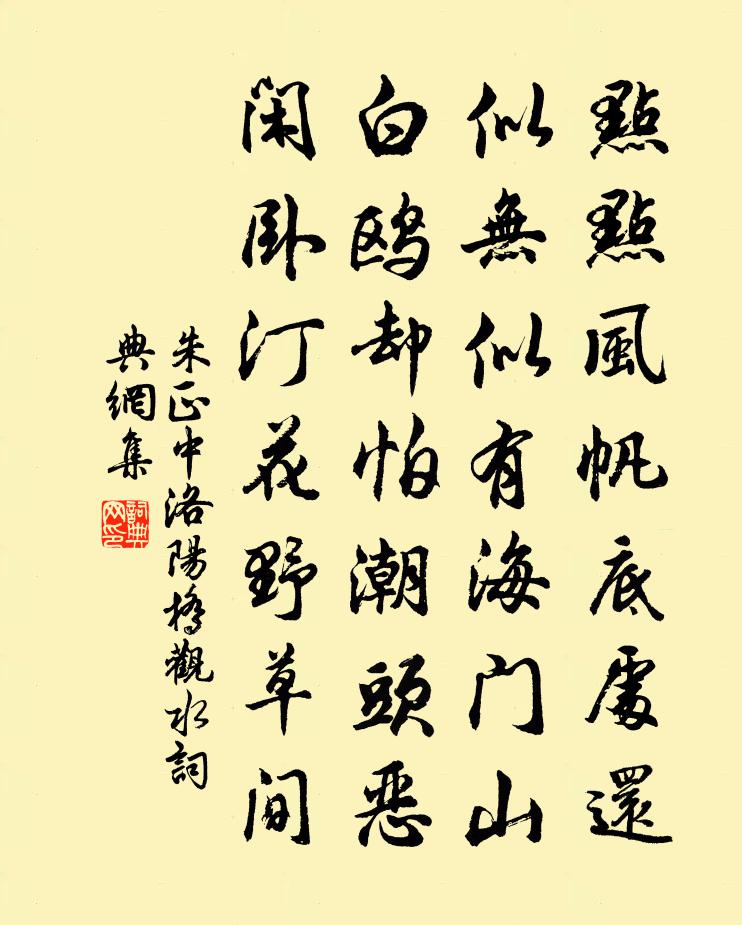 點點風帆底處還
似無似有海門山
白鸥却怕潮頭惡
闲卧汀花野草间
朱正中洛陽橋觀水詞
典網集
詞典网印